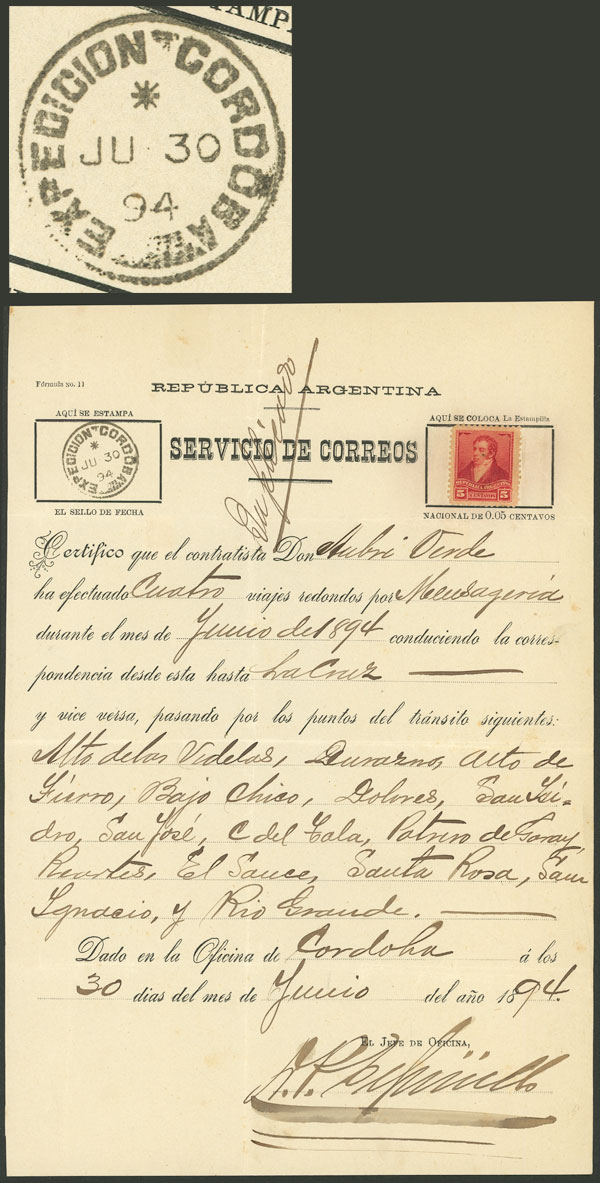 TAMP
EXPEDICION CORDOBA
JU 30
94
Fórmula no. 11
REPÚBLICA ARGENTINA
AQUÍ SE ESTAMPA
AQUÍ SE COLOCA La Estampilla
EXPEDICION CORDOBA
JU 30
94
SERVICIO DE CORREOS
REPUBLICA ARGENTINA
5 CENTAVOS 5
EL SELLO DE FECHA
NACIONAL DE 0.05 CENTAVOS
Certifico que el contratista Don Aubri Verde
ha efectuado Cuatro viajes redondos por Mensageria
durante el mes de Junio de 1894 conduciendo la corres-
pondencia desde esta hasta La Cruz
y vice versa, pasando por los puntos del tránsito siguientes:
Alto de los Videlas, Durazno, Alto de
Fierro, Bajo Chico, Dolores, San Isi-
dro, San José, C del Tala, Potrero de Garay,
Reartes, El Sauce, Santa Rosa, San
Ignacio, y Rio Grande.
Dado en la Oficina de Cordoba á los
30 dias del mes de Junio del año 1894.
EL JEFE DE OFICINA,